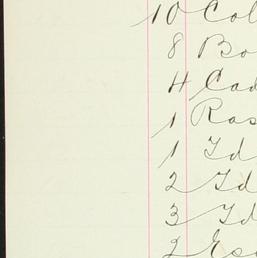 10 Col
8 Bo
4 Cad
1 Ras
1 Id
2 Id
3 Id
2 Es